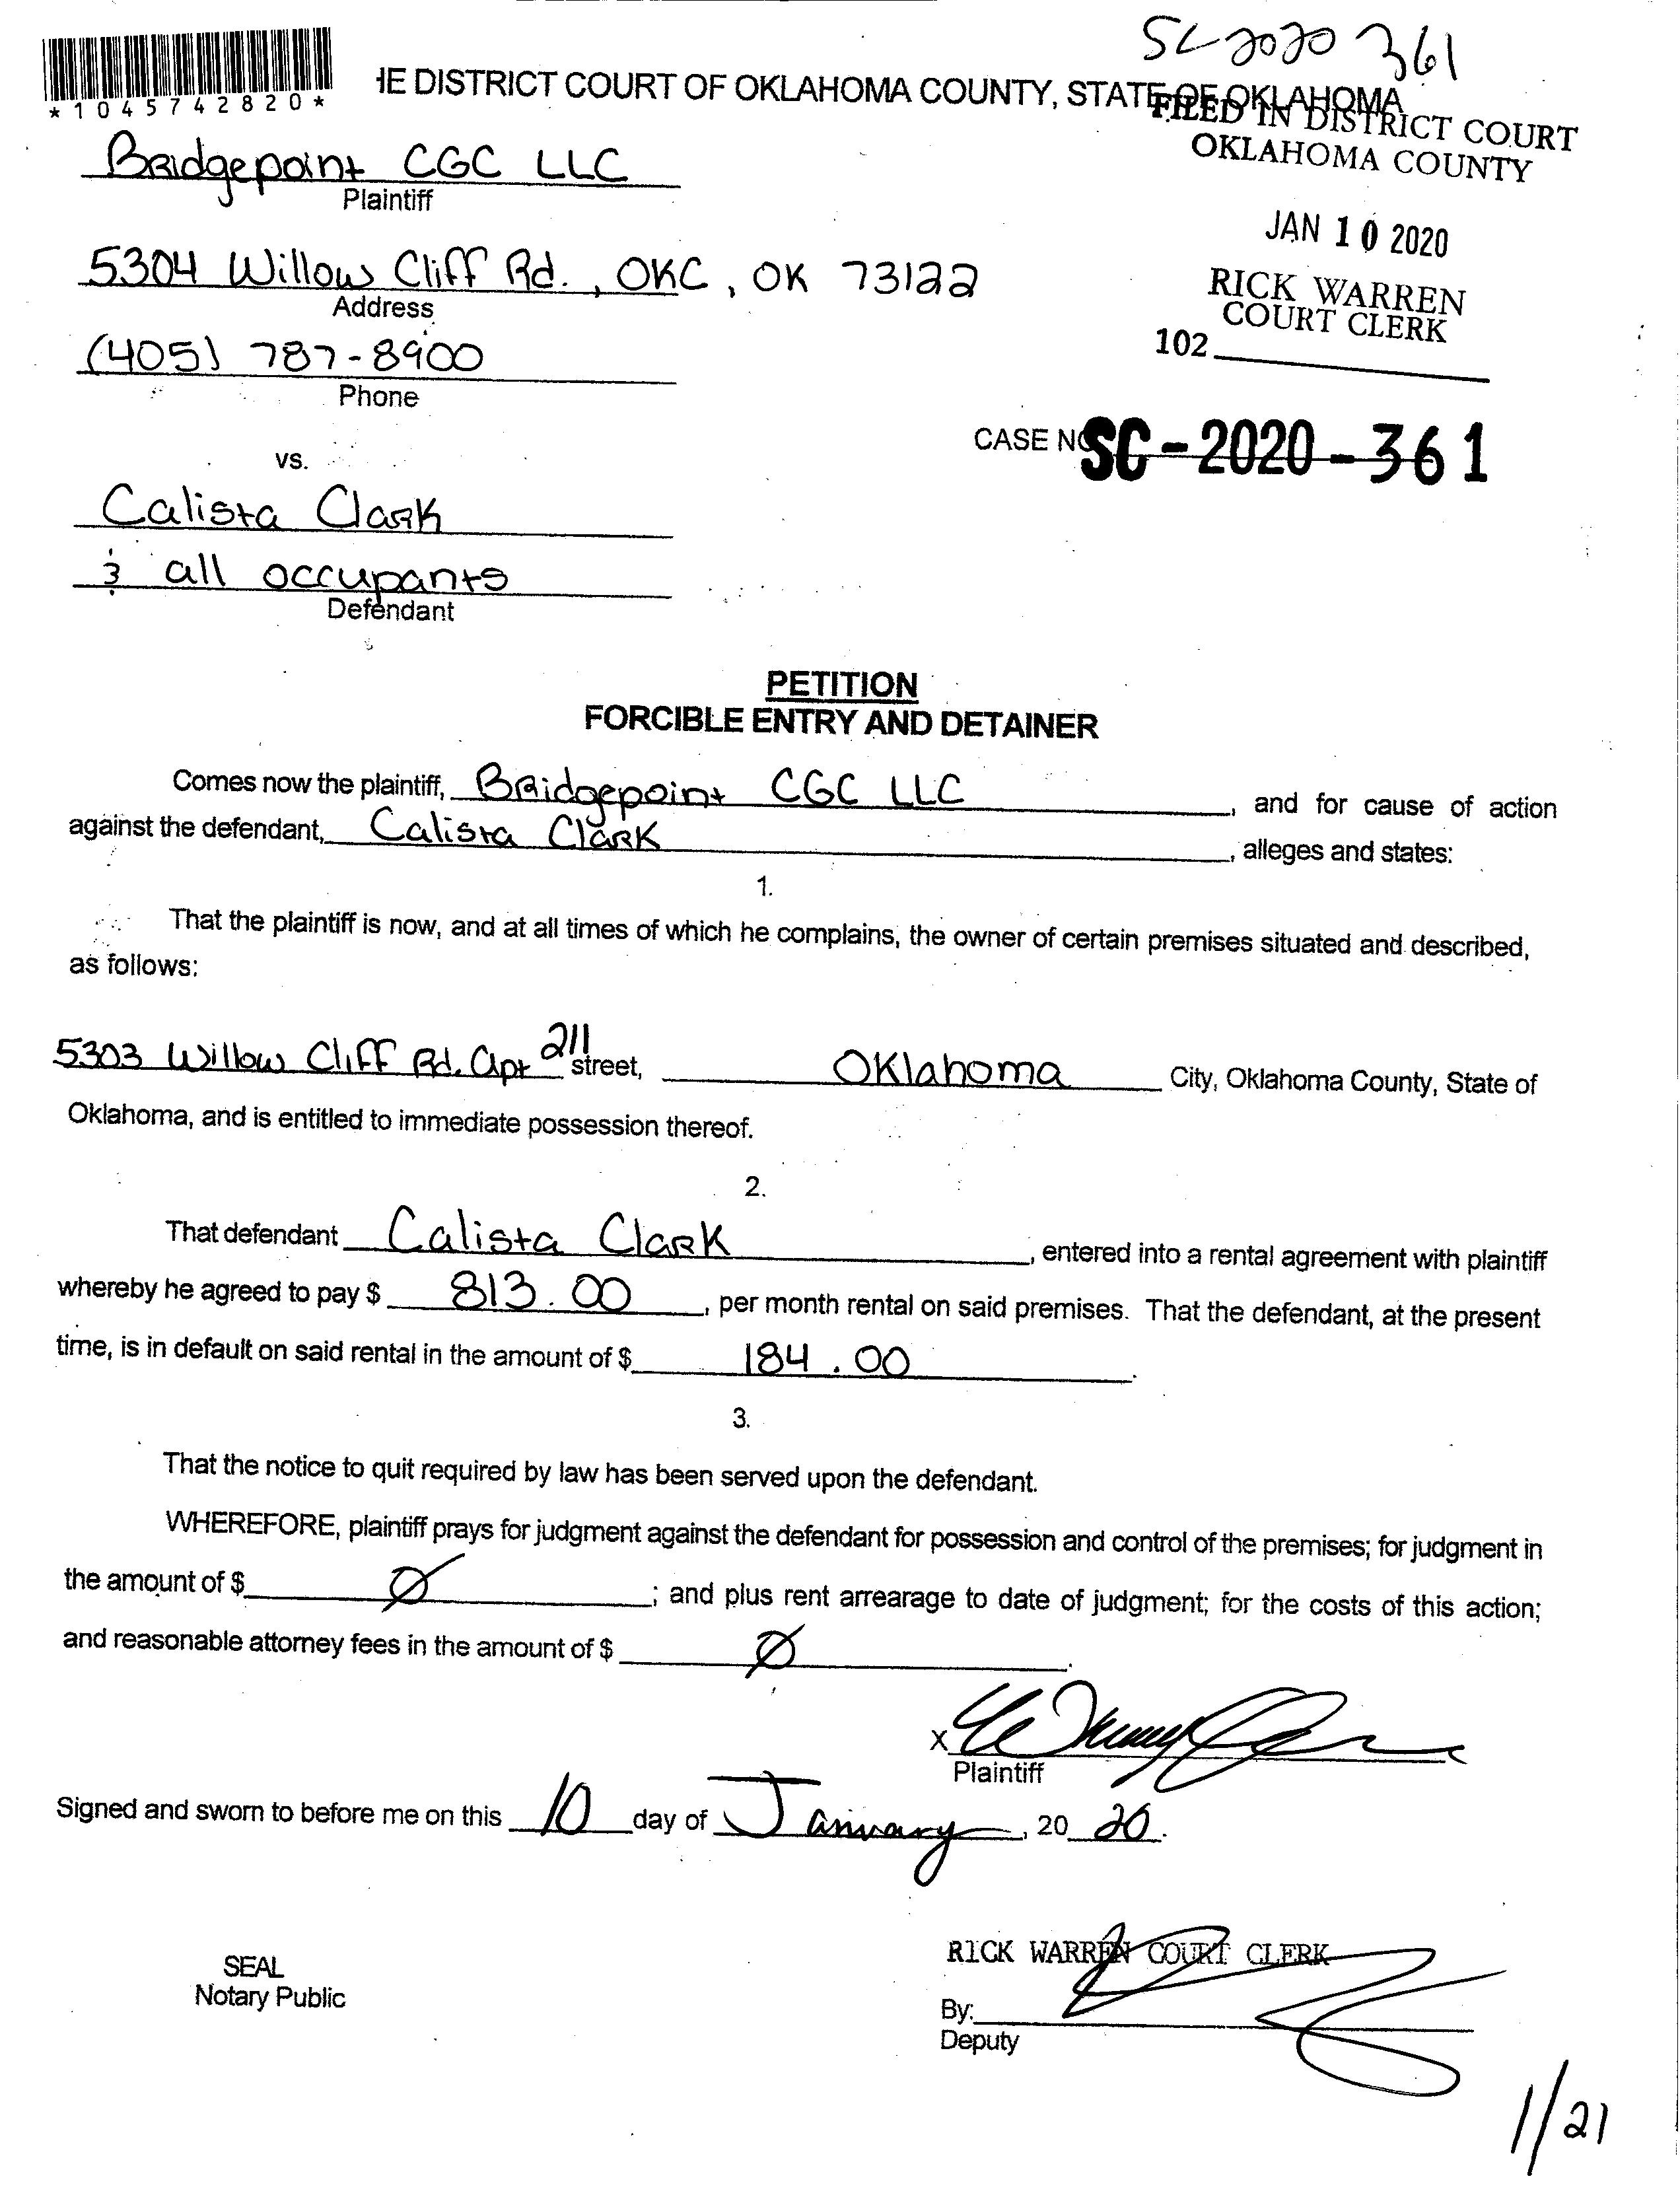 SC 2020 361
*1045742820*
HE DISTRICT COURT OF OKLAHOMA COUNTY, STATE OF OKLAHOMA
FILED IN DISTRICT COURT
OKLAHOMA COUNTY
Bridgepoint CGC LLC
Plaintiff
JAN 10 2020
5304 Willow Cliff Rd., OKC, OK 73122
Address
RICK WARREN
COURT CLERK
(405) 787-8900
102
Phone
CASE NO
SC-2020-361
vs.
Calista Clark
& all occupants
Defendant
PETITION
FORCIBLE ENTRY AND DETAINER
Comes now the plaintiff, Bridgepoint CGC LLC, and for cause of action
against the defendant, Calista Clark, alleges and states:
1.
That the plaintiff is now, and at all times of which he complains, the owner of certain premises situated and described,
as follows:
5303 Willow Cliff Rd. Apt 211 street, Oklahoma City, Oklahoma County, State of
Oklahoma, and is entitled to immediate possession thereof.
2.
That defendant Calista Clark, entered into a rental agreement with plaintiff
whereby he agreed to pay $ 813.00, per month rental on said premises. That the defendant, at the present
time, is in default on said rental in the amount of $ 184.00.
3.
That the notice to quit required by law has been served upon the defendant.
WHEREFORE, plaintiff prays for judgment against the defendant for possession and control of the premises; for judgment in
the amount of $ Ø; and plus rent arrearage to date of judgment; for the costs of this action;
and reasonable attorney fees in the amount of $ Ø.
X
Plaintiff
Signed and sworn to before me on this 10 day of January, 20 20.
RICK WARREN COURT CLERK
SEAL
Notary Public
By:
Deputy
1/21